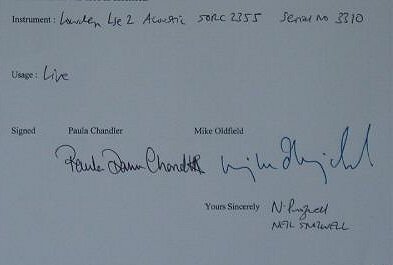 Instrument : Lowden LSE 2 Acoustic SORC 2355 Serial No 3310
Usage : Live
Signed Paula Chandler Mike Oldfield
Paula Chandler
Yours Sincerely
NEIL